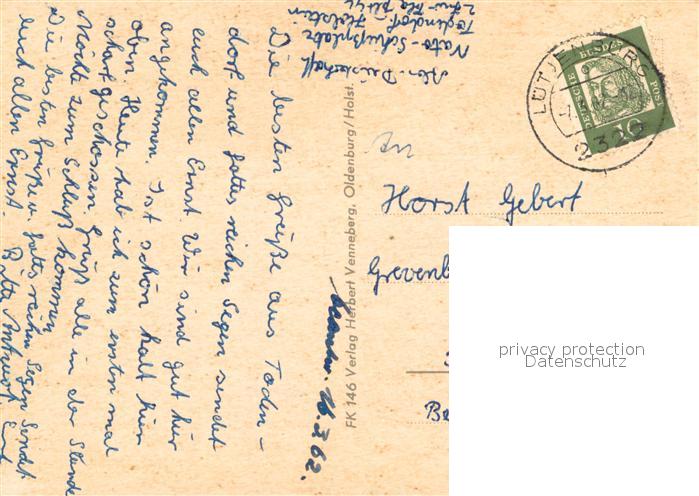 Nato-Schießplatz
Todendorf Holstein
Die besten Grüße aus Toden-
dorf und Gottes reichen Segen sendet
euch allen Ernst. Wir sind gut hier
angekommen. Ist schön kalt hier
oben. Heute hab ich zum ersten mal
scharf geschossen. Grüß alle in der Stunde
Möchte zum Schluß kommen
Die besten Grüße u. Gottes reichen Segen Sendet
euch allen Ernst. Bitte Antwort
16.3.62.
FK 146 Verlag Herbert Venneberg, Oldenburg/Holst.
LÜTJENBURG
2322
DEUTSCHE BUNDESPOST
10
An
Horst Gebert
Grevenb
privacy protection
Datenschutz